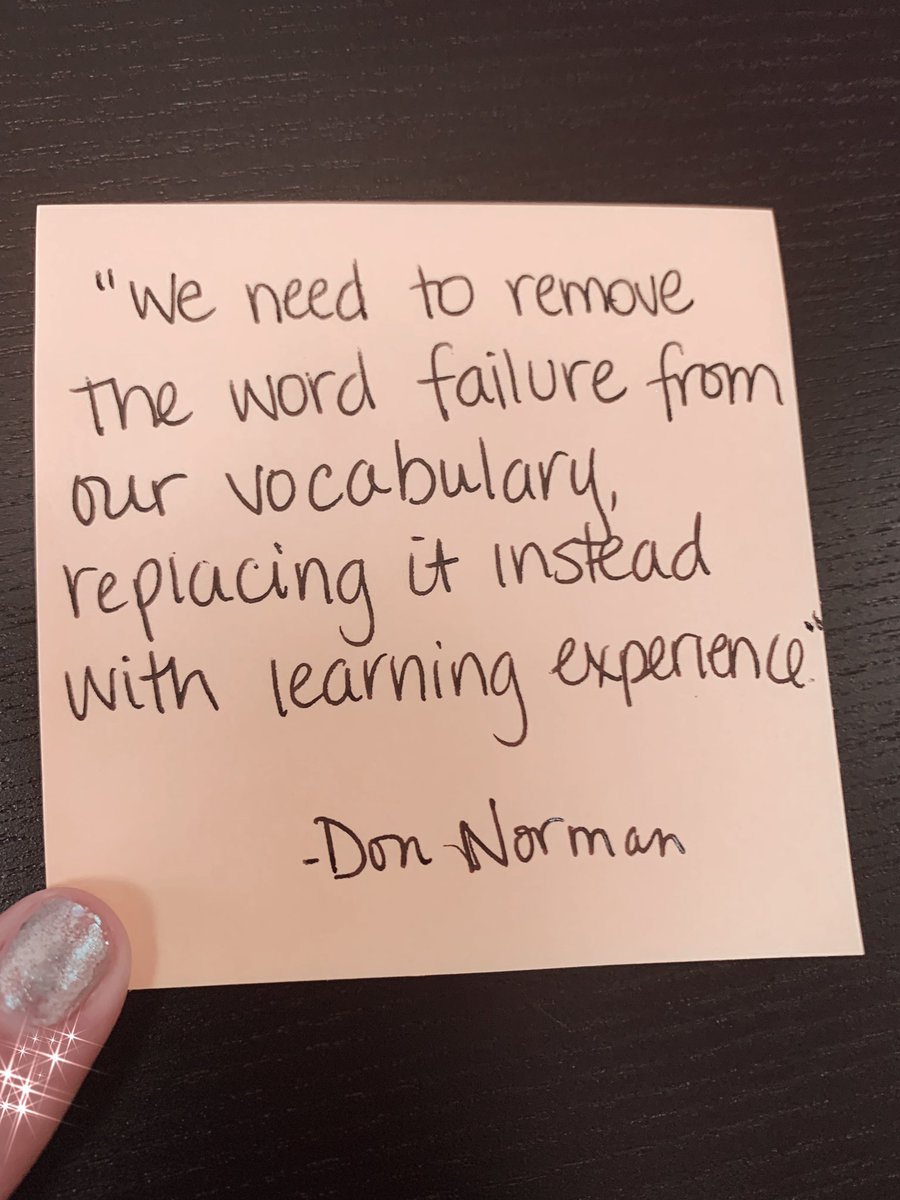 "We need to remove
the word failure from
our vocabulary,
replacing it instead
with learning experience."
-Don Norman